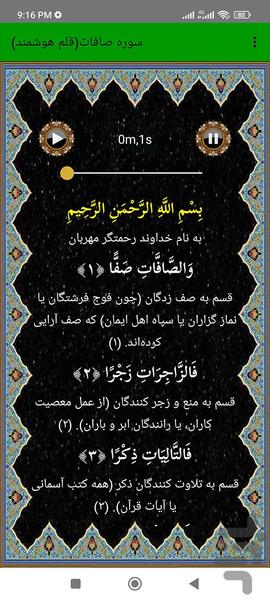 9:16 PM
سوره صافات(قلم هوشمند)
0m,1s
بِسْمِ اللَّهِ الرَّحْمَنِ الرَّحِيمِ
به نام خداوند رحمتگر مهربان
وَالصَّافَّاتِ صَفًّا ﴿۱﴾
قسم به صف زدگان (چون فوج فرشتگان یا
نماز گزاران یا سپاه اهل ایمان) که صف آرایی
کرده‌اند. (۱)
فَالزَّاجِرَاتِ زَجْرًا ﴿۲﴾
قسم به منع و زجر کنندگان (از عمل معصیت
کاران، یا رانندگان ابر و باران). (۲)
فَالتَّالِيَاتِ ذِكْرًا ﴿۳﴾
قسم به تلاوت کنندگان ذکر (همه کتب آسمانی
یا آیات قرآن). (۳)